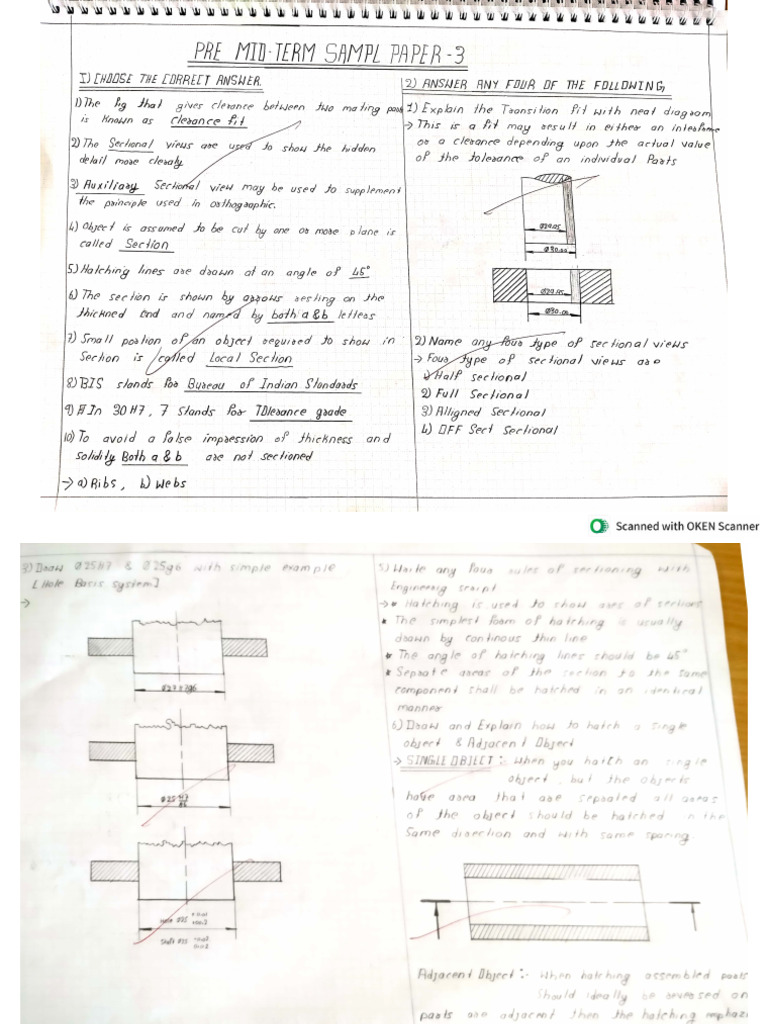 PRE MID-TERM SAMPL PAPER-3
I) CHOOSE THE CORRECT ANSWER.
1) The fig that gives clerance between two mating
is known as Clerance fit
2) The Sectional views are used to show the hidden
detail more clearly
3) Auxiliary Sectional view may be used to supplement
the principle used in orthographic.
4) Object is assumed to be cut by one or more plane is
called Section
5) Hatching lines are drawn at an angle of 45°
6) The section is shown by arrows resting on the
thickned end and named by both a & b letters
7) Small portion of an object required to show in
Section is called Local Section
8) BIS stands for Bureau of Indian Standards
9) In 30H7, 7 stands for TOlerance grade
10) To avoid a false impression of thickness and
solidity Both a & b are not sectioned
→ a) Ribs, b) Webs
2) ANSWER ANY FOUR OF THE FOLLOWING,
1) Explain the Transition fit with neat diagram
→ This is a fit may result in either an
or a clerance depending upon the actual value
of the tolerance of an individual Parts
Ø29.95
Ø30.00
Ø29.95
Ø30.00
2) Name any four type of sectional views
→ Four type of sectional views are
1) Half sectional
2) Full Sectional
3) Alligned Sectional
4) OFF Sect Sectional
Scanned with OKEN Scanner
3) Draw Ø25H7 & Ø25g6 with simple example
[Hole Basis system]
→
Ø25
Hole Ø25
Shaft Ø25
5) Write any four rules of sectioning with
Engineering script
→ * Hatching is used to show ares of sections
* The simplest foam of hatching is usually
drawn by continous thin line
* The angle of hatching lines should be 45°
* Seprate areas of the section to the same
component shall be hatched in an identical
manner
6) Draw and Explain how to hatch a single
object & Adjacent Object
→ SINGLE OBJECT:- When you hatch an single
object, but the objects
have area that are seprated all areas
of the object should be hatched in the
Same direction and with same spacing.
Adjacent Object:- When hatching assembled parts
Should ideally be reversed on
parts are adjacent then the hatching